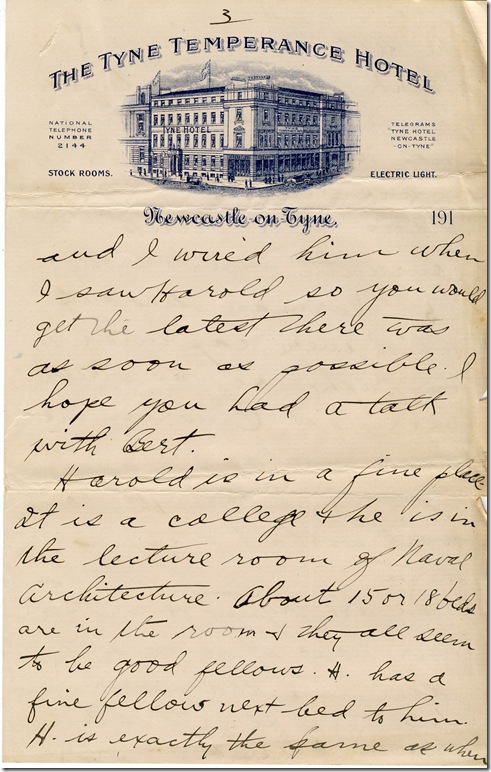 3
THE TYNE TEMPERANCE HOTEL
NATIONAL
TELEPHONE
NUMBER
2144
TYNE HOTEL
TELEGRAMS
"TYNE HOTEL
NEWCASTLE
-ON-TYNE"
STOCK ROOMS.
ELECTRIC LIGHT.
Newcastle on Tyne,
191
and I wired him when
I saw Harold so you would
get the latest there was
as soon as possible. I
hope you had a talk
with Bert.
Harold is in a fine place
It is a college & he is in
the lecture room of Naval
Architecture. About 15 or 18 beds
are in the room & they all seem
to be good fellows. H. has a
fine fellow next bed to him.
H. is exactly the same as when